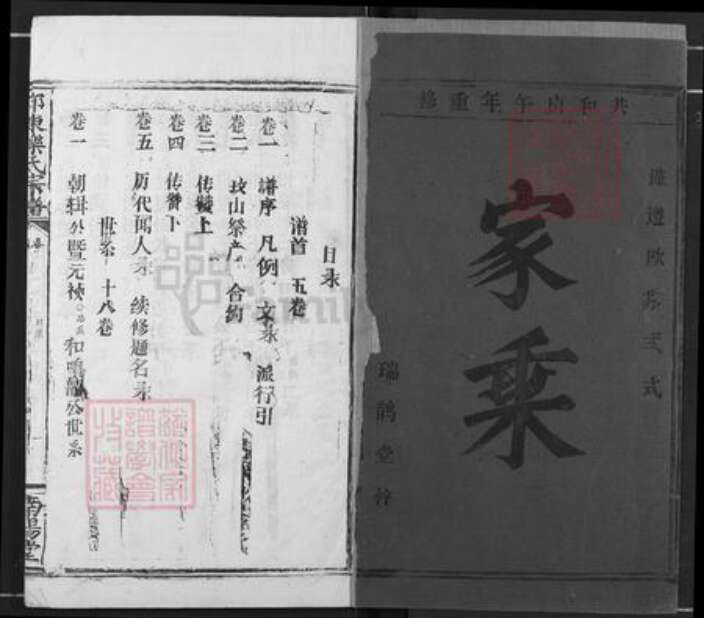 共和庚午年重修
谨遵欧苏玊式
家乘
瑞鹊堂梓
目录
谱首 五卷
卷一 谱序 凡例 文录 派行引
卷二 坟山祭产 合约
卷三 传赞上
卷四 传赞下
卷五 历代闻人录 续修题名录
世系 十八卷
卷一 朝辑公暨元祯 和 公世系
东 氏宗谱
南阳堂